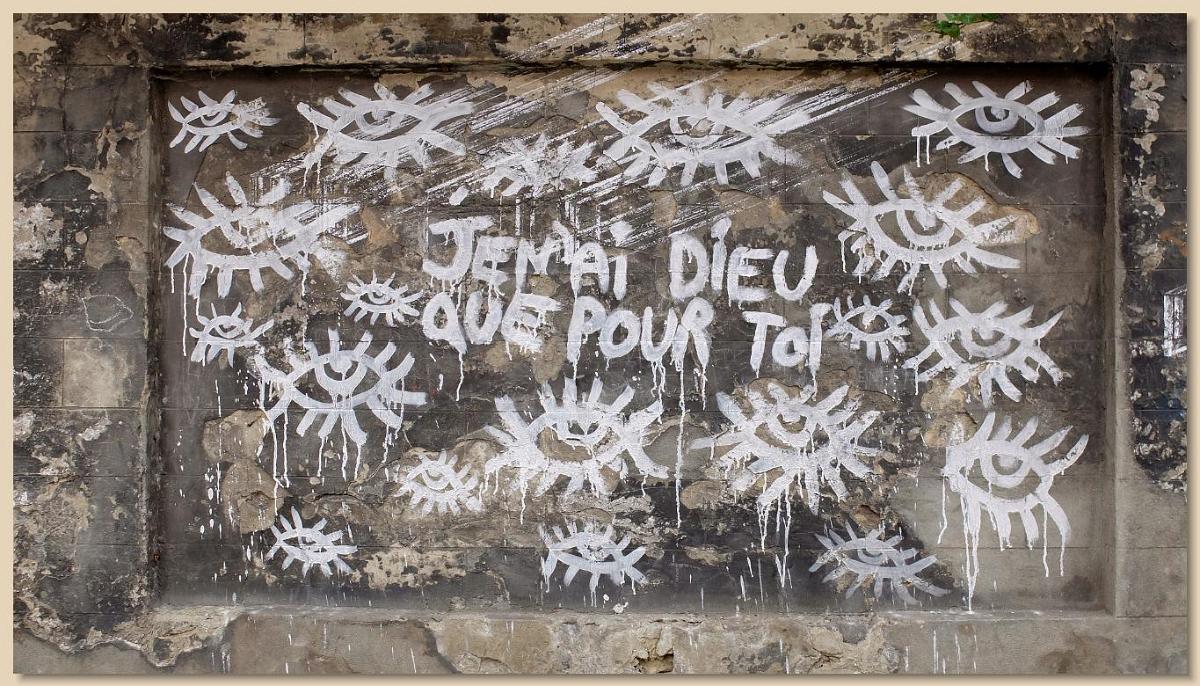 JEN'Ai DiEU
QUE POUR Toi